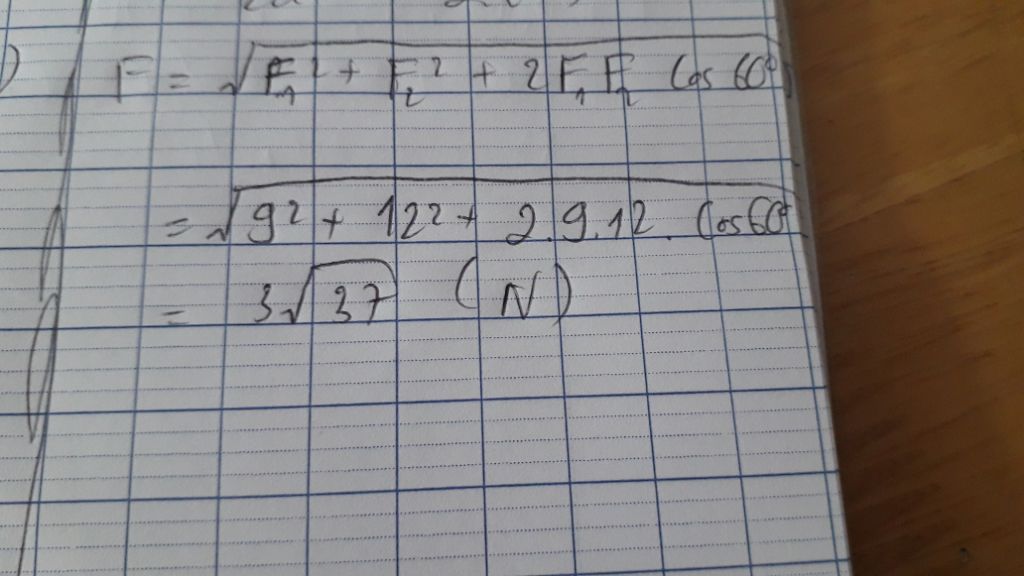 ) F = √(F₁² + F₂² + 2F₁F₂ cos 60°)
= √(9² + 12² + 2.9.12. Cos60°)
= 3√37 (N)